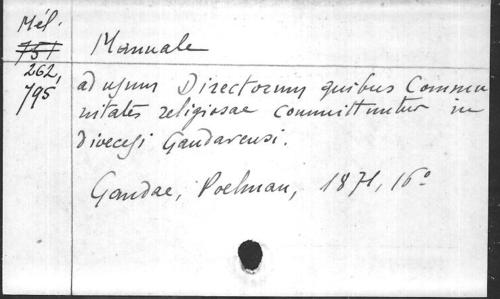 Mél.
751
262,
795
Manuale
ad usum Directorum quibus Commu
nitates religiosae committuntur in
diocesi Gandavensi.
Gandae, Poelman, 1871, 16°